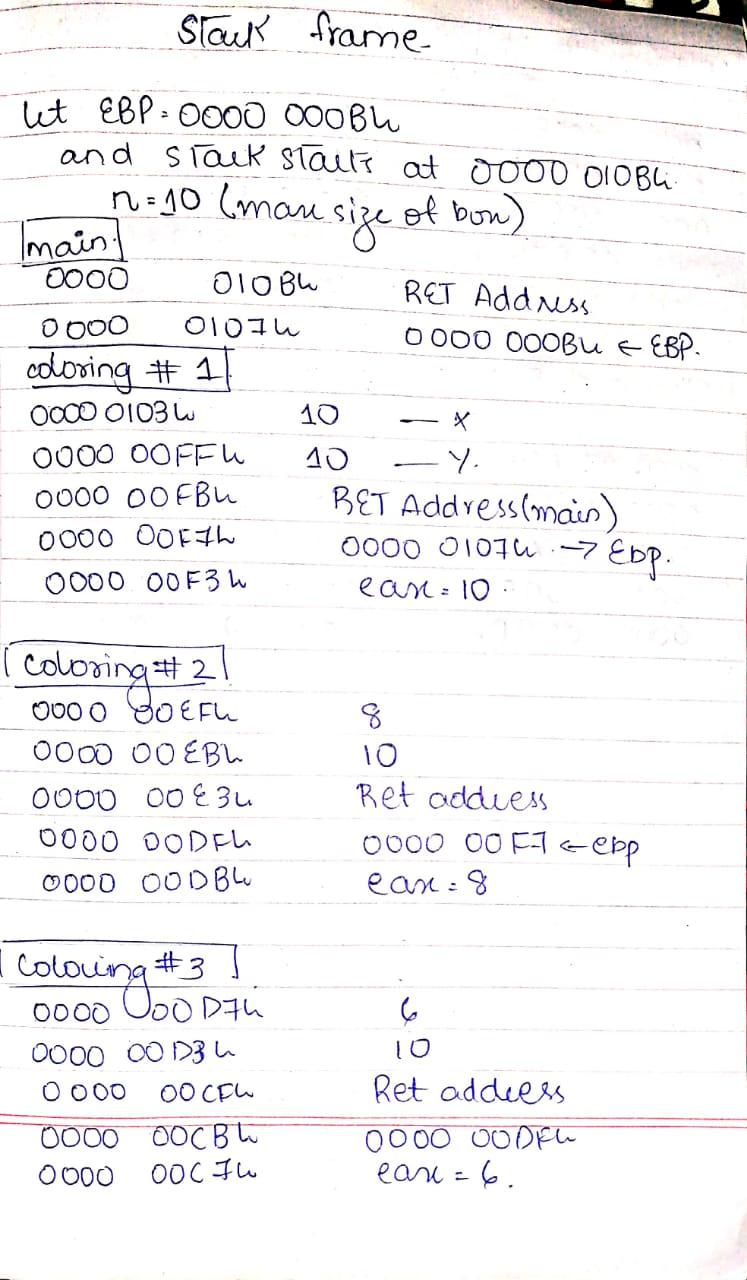 Stack frame
let EBP = 0000 000Bh
and stack starts at 0000 010Bh.
n=10 (max size of box)
main:
0000 010Bh RET Address
0000 0107h 0000 000Bh ← EBP.
coloring # 1
0000 0103h 10 — X
0000 00FFh 10 — Y.
0000 00FBh RET Address (main)
0000 00F7h 0000 0107h → Ebp.
0000 00F3h eax = 10.
Coloring # 2
0000 00EFh 8
0000 00EBh 10
0000 00E3h Ret address
0000 00DFh 0000 00F7 ← ebp
0000 00DBh eax = 8
Coloring #3
0000 00D7h 6
0000 00D3h 10
0000 00CFh Ret address
0000 00CBh 0000 00DFh
0000 00C7h eax = 6.